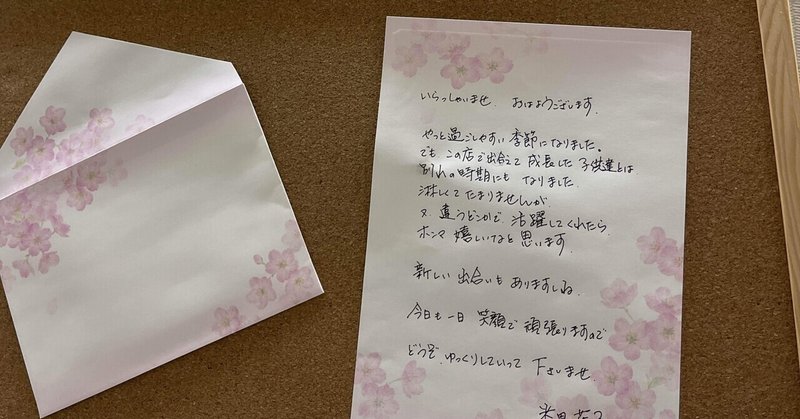 いらっしゃいませ、おはようございます。
やっと過ごしやすい季節になりました。
でも この店で出会えて 成長した 子供達とは
別れの時期にも なりました。
淋しくてたまりませんが
又、違うどこかで 活躍してくれたら
ホンマ 嬉しいなと 思います。
新しい 出合いも ありますしね。
今日も一日 笑顔で 頑張りますので
どうぞ ゆっくりしていって 下さいませ。